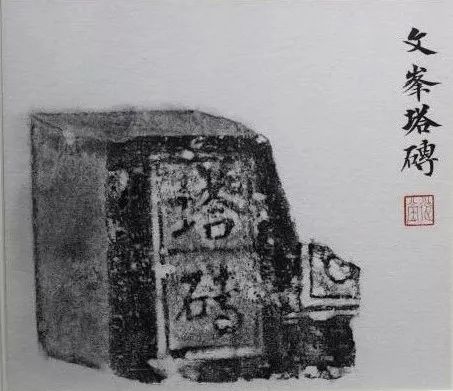 文峯塔磚
塔砖